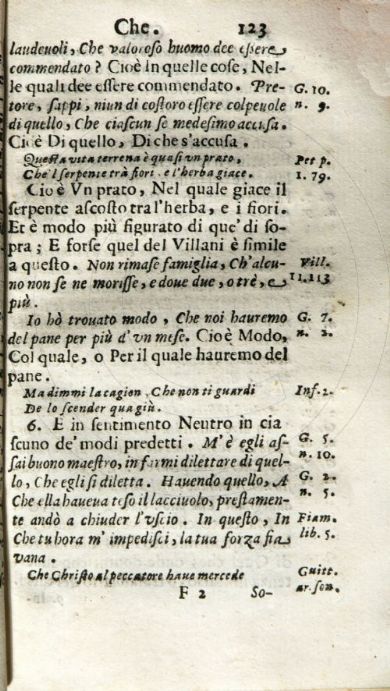 Che. 123
laudeuoli, Che valoroso huomo dee essere
commendato? Cioè in quelle cose, Nel-
le quali dee essere commendato. Pre- G. 10.
tore, sappi, niun di costoro essere colpeuole n. 9.
di quello, Che ciascun se medesimo accusa.
Cioè Di quello, Di che s'accusa.
Questa vita terrena è quasi vn prato, Pet p.
Che'l serpente trà fiori. e l'herba giace. 1. 79.
Cioè Vn prato, Nel quale giace il
serpente ascosto tra l'herba, e i fiori.
Et è modo più figurato di que' di so-
pra; E forse quel del Villani è simile
a questo. Non rimase famiglia, Ch'alcu- Vill.
no non se ne morisse, e doue due, o trè, e 11.113
più.
Io hò trouato modo, Che noi hauremo G. 7.
del pane per più d'vn mese. Cioè Modo, n. 2.
Col quale, o Per il quale hauremo del
pane.
Ma dimmi la cagion, Che non ti guardi Inf. 2.
De lo scender qua giù.
6. E in sentimento Neutro in cia
scuno de' modi predetti. M'è egli as- G. 5.
sai buono maestro, in farmi dilettare di quel- n. 10.
lo, Che egli si diletta. Hauendo quello, A G. 2
Che ella haueua teso il lacciuolo, prestamen- n. 5.
te andò a chiuder l'vscio. In questo, In Fiam.
Che tu hora m' impedisci, la tua forza sia lib. 5.
vana.
Che Christo al peccatore haue mercede Guitt.
F 2 So- ar. son.